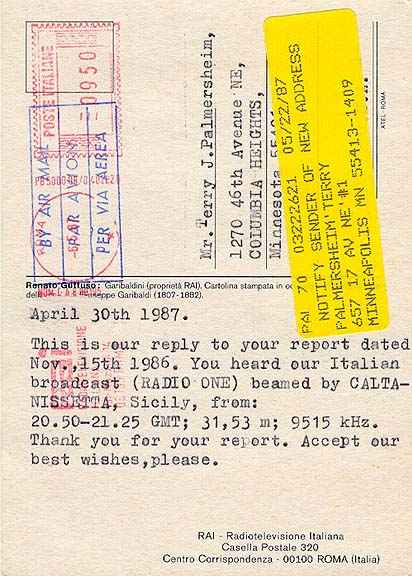 POSTE ITALIANE
0950
BY AIR MAIL
PAR AVION
PER VIA AEREA
Mr.Terry J.Palmersheim,
1270 46th Avenue NE,
COLUMBIA HEIGHTS,
Minnesota
PAI 70 03222621 05/22/87
NOTIFY SENDER OF NEW ADDRESS
PALMERSHEIM'TERRY
657 17 AV NE '#1
MINNEAPOLIS MN 55413-1409
ATEL - ROMA
Renato Guttuso: Garibaldini (proprietà RAI). Cartolina stampata in
Giuseppe Garibaldi (1807-1882).
April 30th 1987.
This is our reply to your report dated
Nov.,15th 1986. You heard our Italian
broadcast (RADIO ONE) beamed by CALTA-
NISSETTA, Sicily, from:
20.50-21.25 GMT; 31,53 m; 9515 kHz.
Thank you for your report. Accept our
best wishes,please.
RAI - Radiotelevisione Italiana
Casella Postale 320
Centro Corrispondenza - 00100 ROMA (Italia)